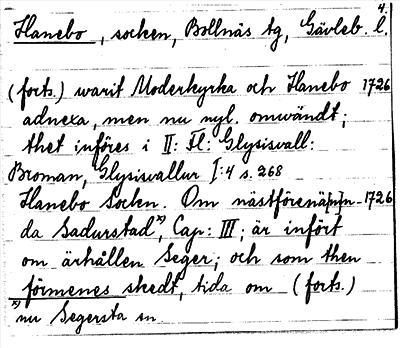 4.
Hanebo, socken, Bollnäs tg, Gävleb. l.
(forts.) warit Moderkyrka och Hanebo 1726
adnexa, men nu nyl. omwändt;
thet införes i II: Fl: Glysisvall:
Broman, Glysisvallur I:4 s. 268
Hanebo Socken. Om nästförenä[m]n- 1726
da Sadurstad*), Cap: III; är infört
om ärhållen Seger; och som then
förmenes skedt, tida om (forts.)
*) nu Segersta sn